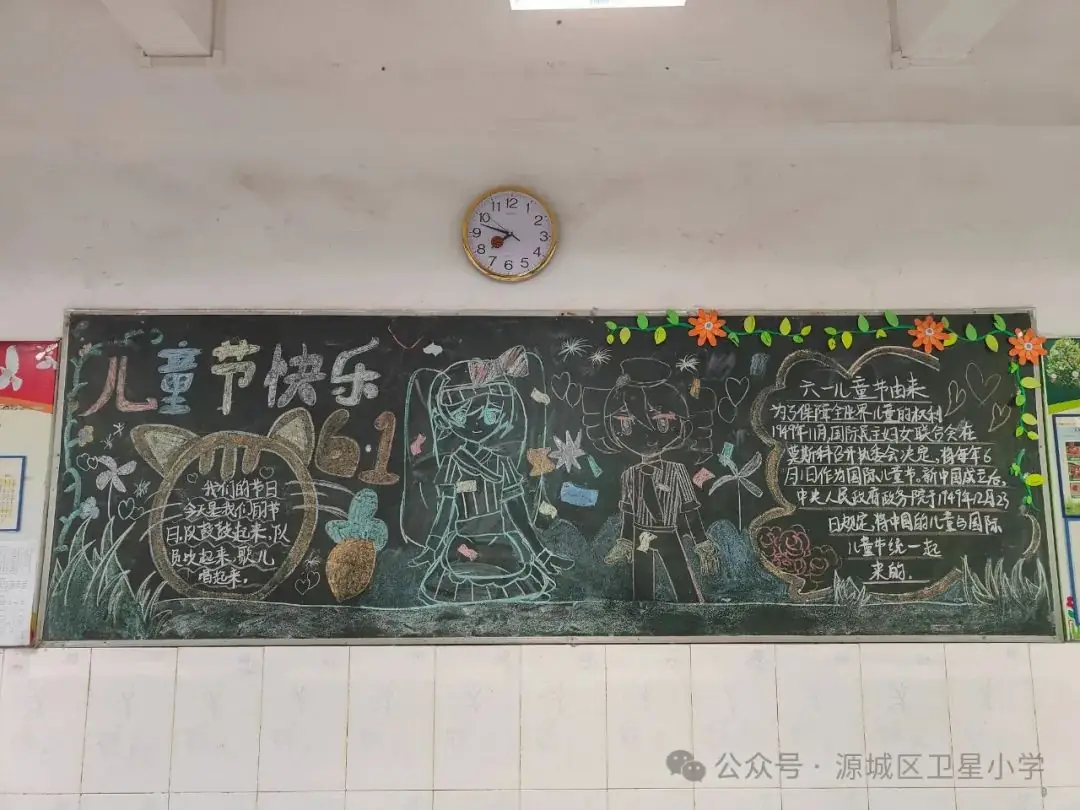 12
1
2
3
4
5
6
7
8
9
10
11
儿童节快乐
6.1
我们的节日
今天是我们的节
日,队鼓敲起来,队
员欢起来,歌儿
唱起来。
六一儿童节由来
为了保障全世界儿童的权利
1949年11月,国际民主妇女联合会在
莫斯科召开执委会决定,将每年6
月1日作为国际儿童节。新中国成立后,
中央人民政府政务院于1949年12月23
日规定,将中国的儿童与国际
儿童节统一起
来的。
公众号·源城区卫星小学